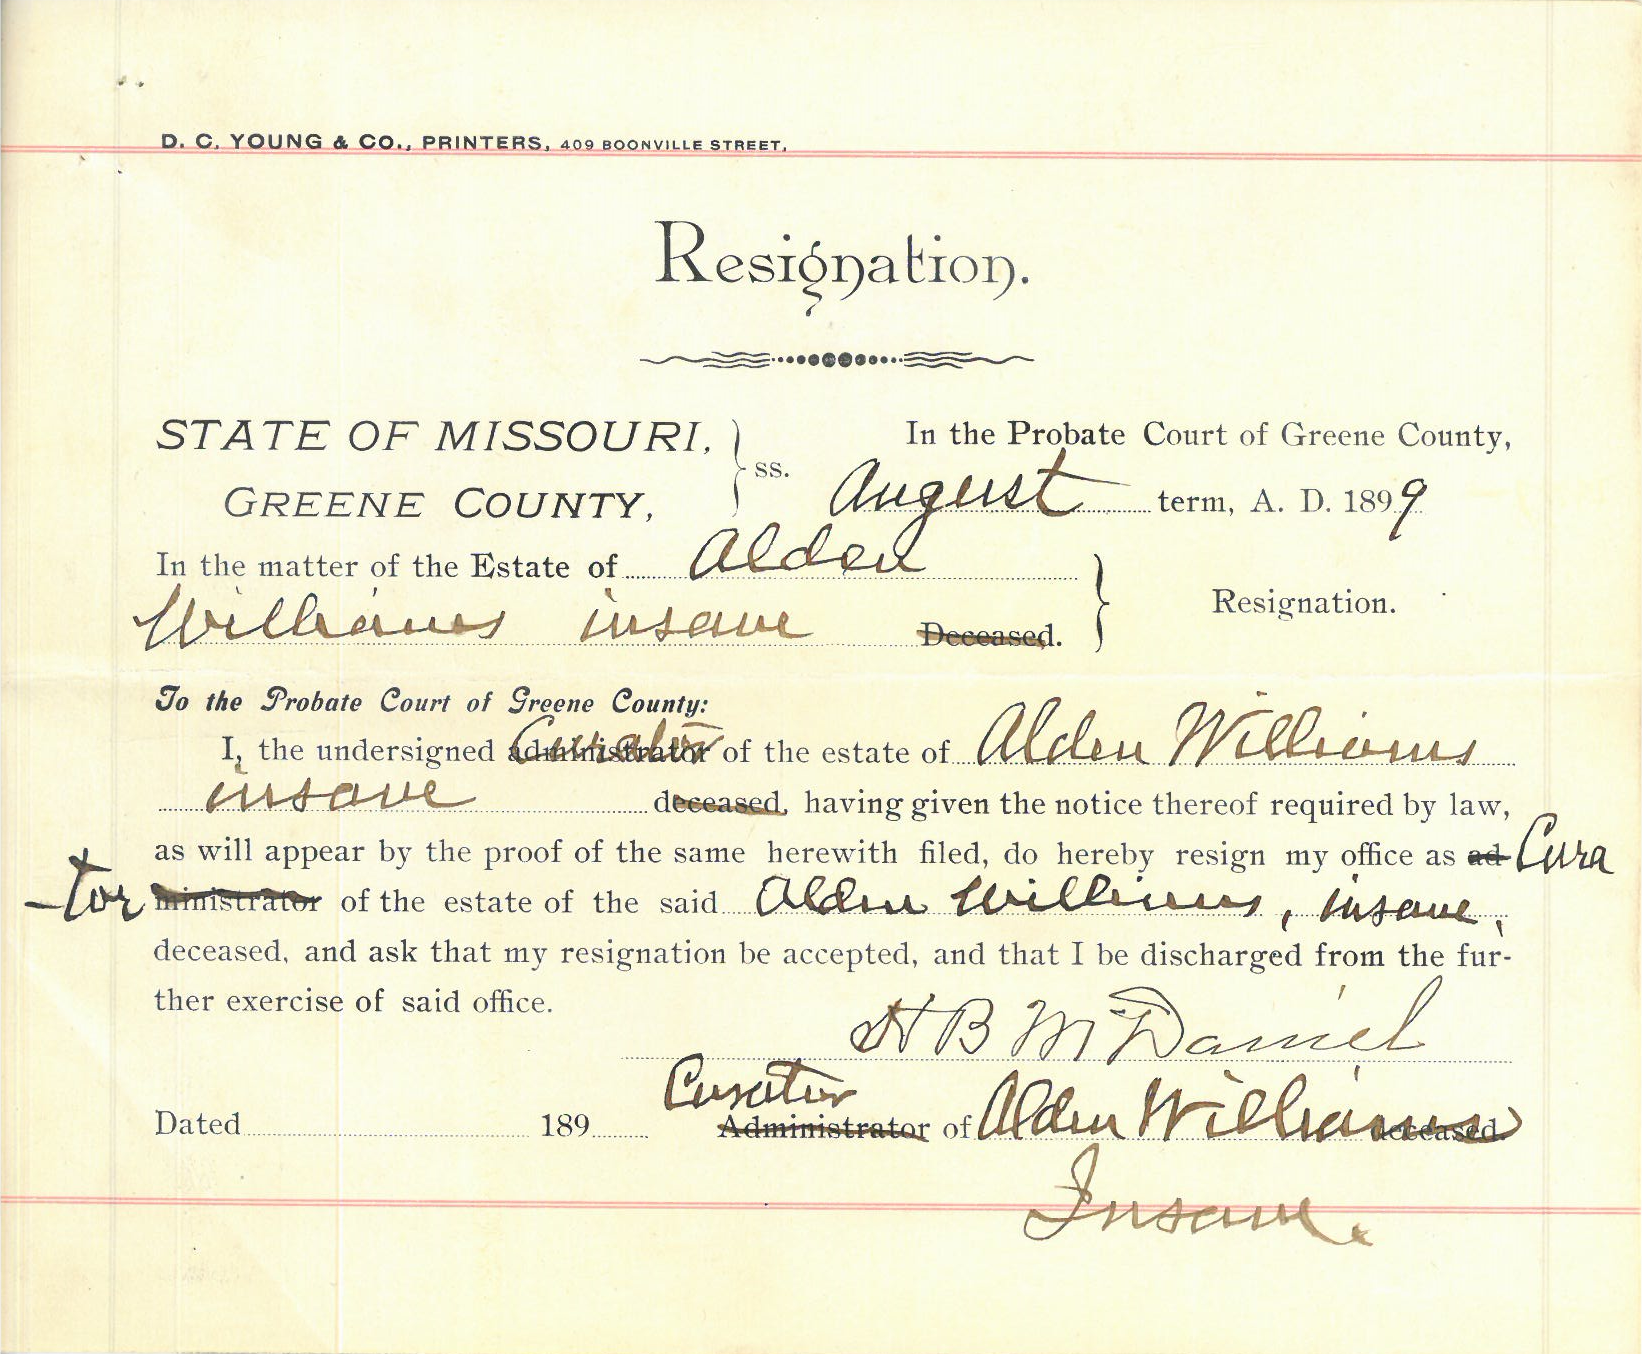 D. C. YOUNG & CO., PRINTERS, 409 BOONVILLE STREET,
Resignation.
STATE OF MISSOURI, } ss. In the Probate Court of Greene County,
GREENE COUNTY, August term, A. D. 1899
In the matter of the Estate of Alden
Williams insane Deceased. } Resignation.
To the Probate Court of Greene County:
I, the undersigned administrator Curator of the estate of Alden Williams
insane deceased, having given the notice thereof required by law,
as will appear by the proof of the same herewith filed, do hereby resign my office as ad- Cura
-tor ministrator of the estate of the said Alden Williams, insane,
deceased, and ask that my resignation be accepted, and that I be discharged from the fur-
ther exercise of said office.
H B McDaniel
Curator
Dated 189 Administrator of Alden Williams deceased.
Insane.